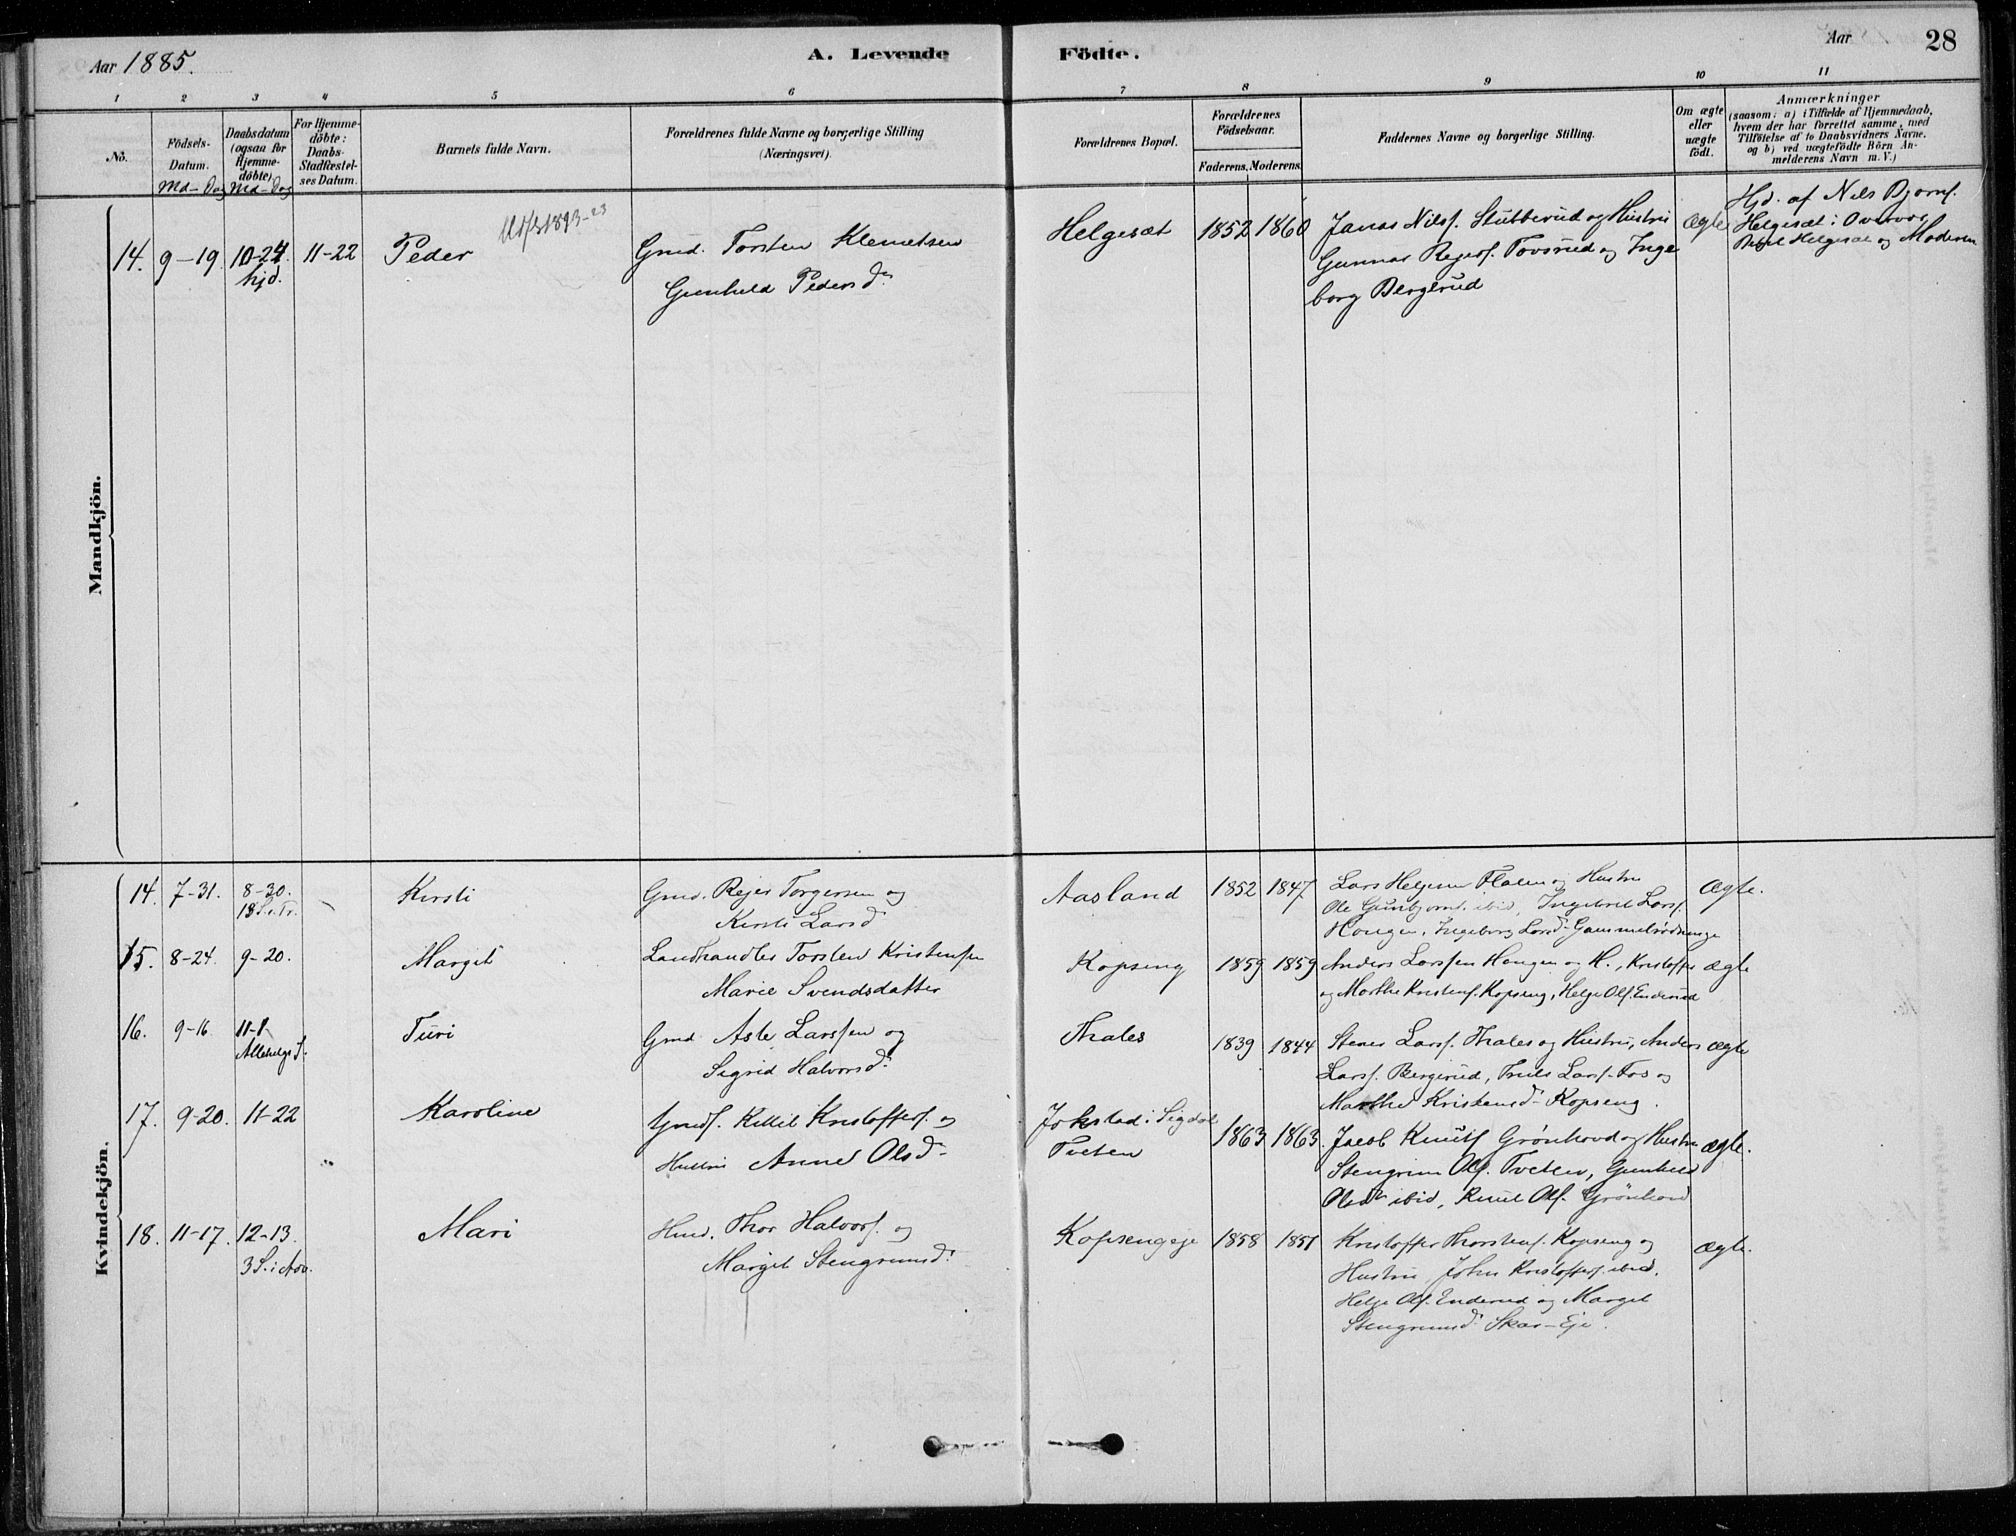 Aar 1885.
A. Levende Födte.
Aar
28
1 2 3 4 5 6 7 8 9 10 11
No.
Födsels-
Datum.
Md- Dag
Daabsdatum
(ogsaa for
Hjemme-
döbte)
Md- Dag
For Hjemme-
döbte:
Daabs-
Stadfæstel-
ses Datum.
Barnets fulde Navn.
Forældrenes fulde Navne og borgerlige Stilling
(Næringsvei).
Forældrenes Bopæl.
Forældrenes
Födselsaar.
Faderens. Moderens.
Faddernes Navne og borgerlige Stilling.
Om ægte
eller
uægte
födt.
Anmærkninger
(saasom: a) i Tilfælde af Hjemmedaab,
hvem der har forrettet samme, med
Tilföielse af to Daabsvidners Navne.
og b) ved uægtefödte Börn An-
melderens Navn m. V.)
Mandkjön.
14. 9-19. 10-24. hjd. 11-22
Peder
1893-23
Gmd. Torsten Klemetsen
Gunhild Pedersdr
Helgesæt
1852 1860
Jonas Nilsf. Stubberud og Hustru
Gunnar Rejersf. Tovsrud og Inge
borg Bergerud
Ægte
Hjd. af Nils Bjornf.
Helgesæt i Overvær
Helgesæt og Moderen
Kvindekjön.
14. 7-31. 8-30.
13 S. e. Tr.
Kirsti
Gmd. Rejer Torgersen og
Kirsti Larsd
Aasland
1852 1847
Lars Helgesen Flaten og Hustru
Ole Gunbjornf. ibid, Ingebret Larsf.
Haugen, Ingeborg Larsd
Ægte.
15. 8-24. 9-20.
Margit
Landhandler Torsten Kristensen
Marie Svendsdatter
Kopseng
1859 1859
Anders Larssen Haugen og H., Kristoffer
og Marthe Kristenf. Kopseng, Helge Olf. Enderud
ægte
16. 9-16 11-1
Allehelgs S.
Turi
Gmd. Asle Larssen og
Sigrid Halvorsdr
Thales
1839 1844
Stener Larsf. Thales og Hustru, Anders
Larsf. Bergerud, Truls Larsf. Fos og
Marthe Kristensd. Kopseng.
ægte
17. 9-20. 11-22
Karoline
Gmdf. Kittil Kristoffersf. og
Hustru Anne Olsd.
Jokstad i Sigdal
Tveten
1863 1863.
Jacob Knutf Grönhovd og Hustru
Stengrim Olf. Tveten, Gunhild
Olsdr ibid, Knut Olf. Grönhovd
ægte.
18. 11-17. 12-13.
3 S. i Adv.
Mari
Hmd. Thor Halvorf. og
Margit Stengrimsdr
Kopsengeje
1858 1851
Kristoffer Thorstenf. Kopseng og
Hustru John Kristoffersf. ibid.
Helge Olf. Enderud og Margit
Stengrimsd. Skar-Eje.
ægte.